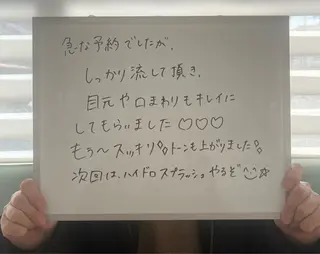 急な予約でしたが、
しっかり流して頂き、
目元や口まわりもキレイに
してもらいました♡♡♡
もう〜スッキリ!!トーンも上がりました!!
次回は、ハイドロスプラッシュやるぞ^^☆